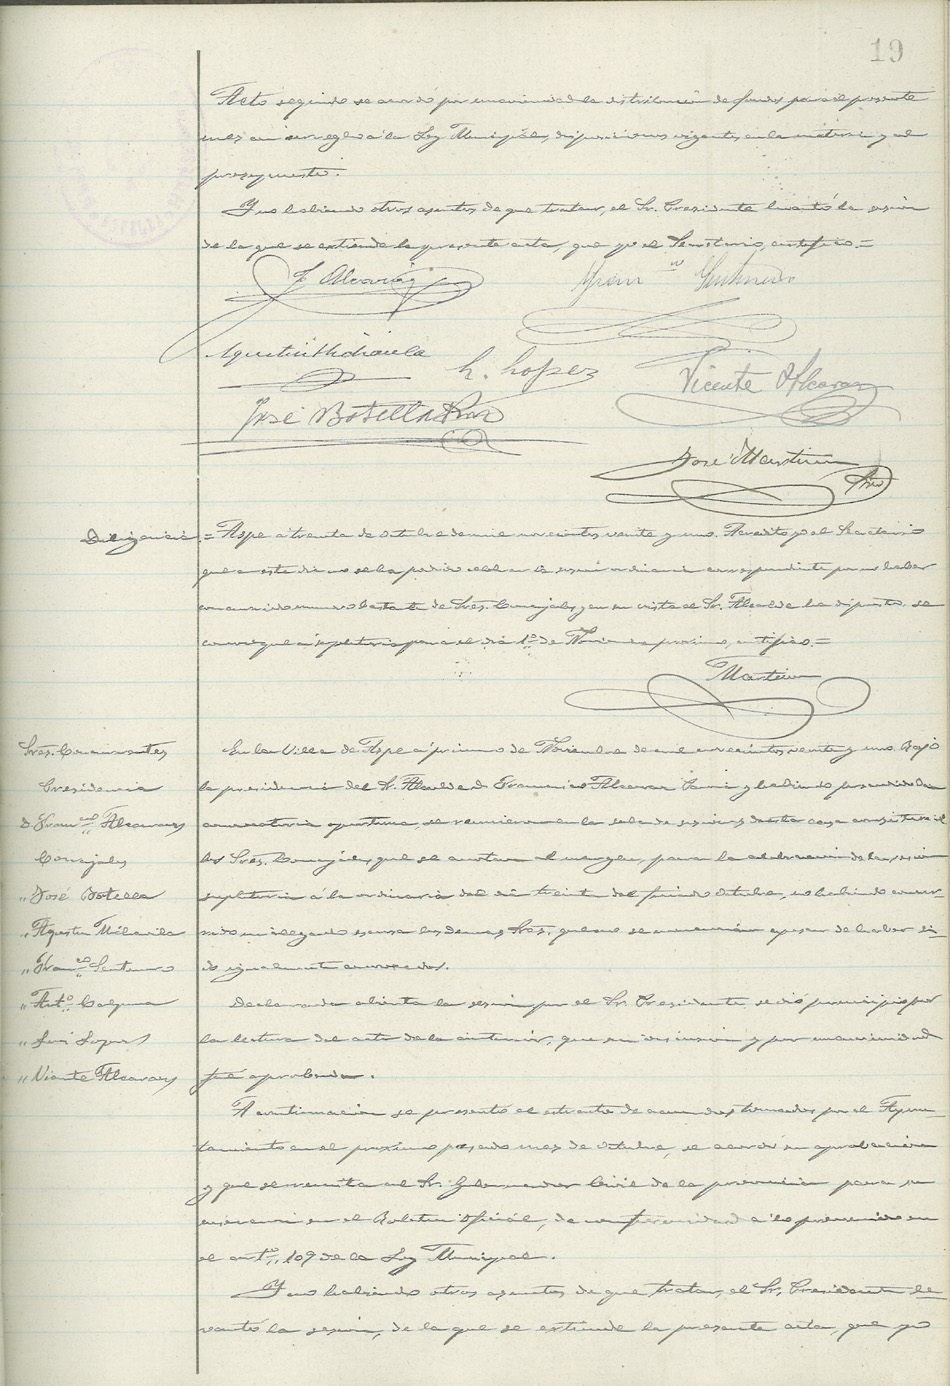 19
Acto seguido se acordó por unanimidad la distribución de fondos para el presente
mes con arreglo a la Ley Municipal, disposiciones vigentes en la materia y al
presupuesto.
Y no habiendo otros asuntos de que tratar, el Sr. Presidente levantó la sesión
de la que se extiende la presente acta, que yo el Secretario, certifico =
F Alcaraz
Agustín Mira
h. Lopez
Vicente Alcaraz
José Botella
José Martinez
Srio
Diligencia = Aspe a treinta de Octubre de mil novecientos veinte y uno. Acredito yo el Secretario
que en este día no se ha podido celebrar la sesión ordinaria correspondiente por no haber
concurrido número bastante de Sres. Concejales, y en su vista el Sr. Alcalde ha dispuesto se
convoque a supletoria para el día 1º de Noviembre próximo, certifico =
Martinez
Sres. Concurrentes
Presidencia
D. Franco Alcaraz
Concejales
" José Botella
" Agustín
" Franco
" Anto
" Luis Lopez
" Vicente Alcaraz
En la Villa de Aspe a primero de Noviembre de mil novecientos veinte y uno Bajo
la presidencia del Sr. Alcalde D. Francisco Alcaraz y habiendo precedido
convocatoria oportuna, se reunieron en la sala de sesiones de esta casa consistorial
los Sres. Concejales que se anotan al margen, para la celebración de la sesión
supletoria a la ordinaria del día treinta del finado Octubre, no habiendo concur-
rido ni alegado escusa los demas Sres. que no se mencionan apesar de haber si-
do igualmente convocados.
Declarada abierta la sesión por el Sr. Presidente se dió principio por
la lectura del acta de la anterior, que sin discusión y por unanimidad
fué aprobada.
A continuación se presentó el extracto de acuerdos tomados por el Ayun-
tamiento en el proximo pasado mes de Octubre, se acordó su aprobación
y que se remita al Sr. Gobernador Civil de la provincia para su
inserción en el Boletín Oficial, de conformidad a lo prevenido en
el arto. 109 de la Ley Municipal.
Y no habiendo otros asuntos de que tratar, el Sr. Presidente le-
vantó la sesión, de la que se extiende la presente acta, que yo